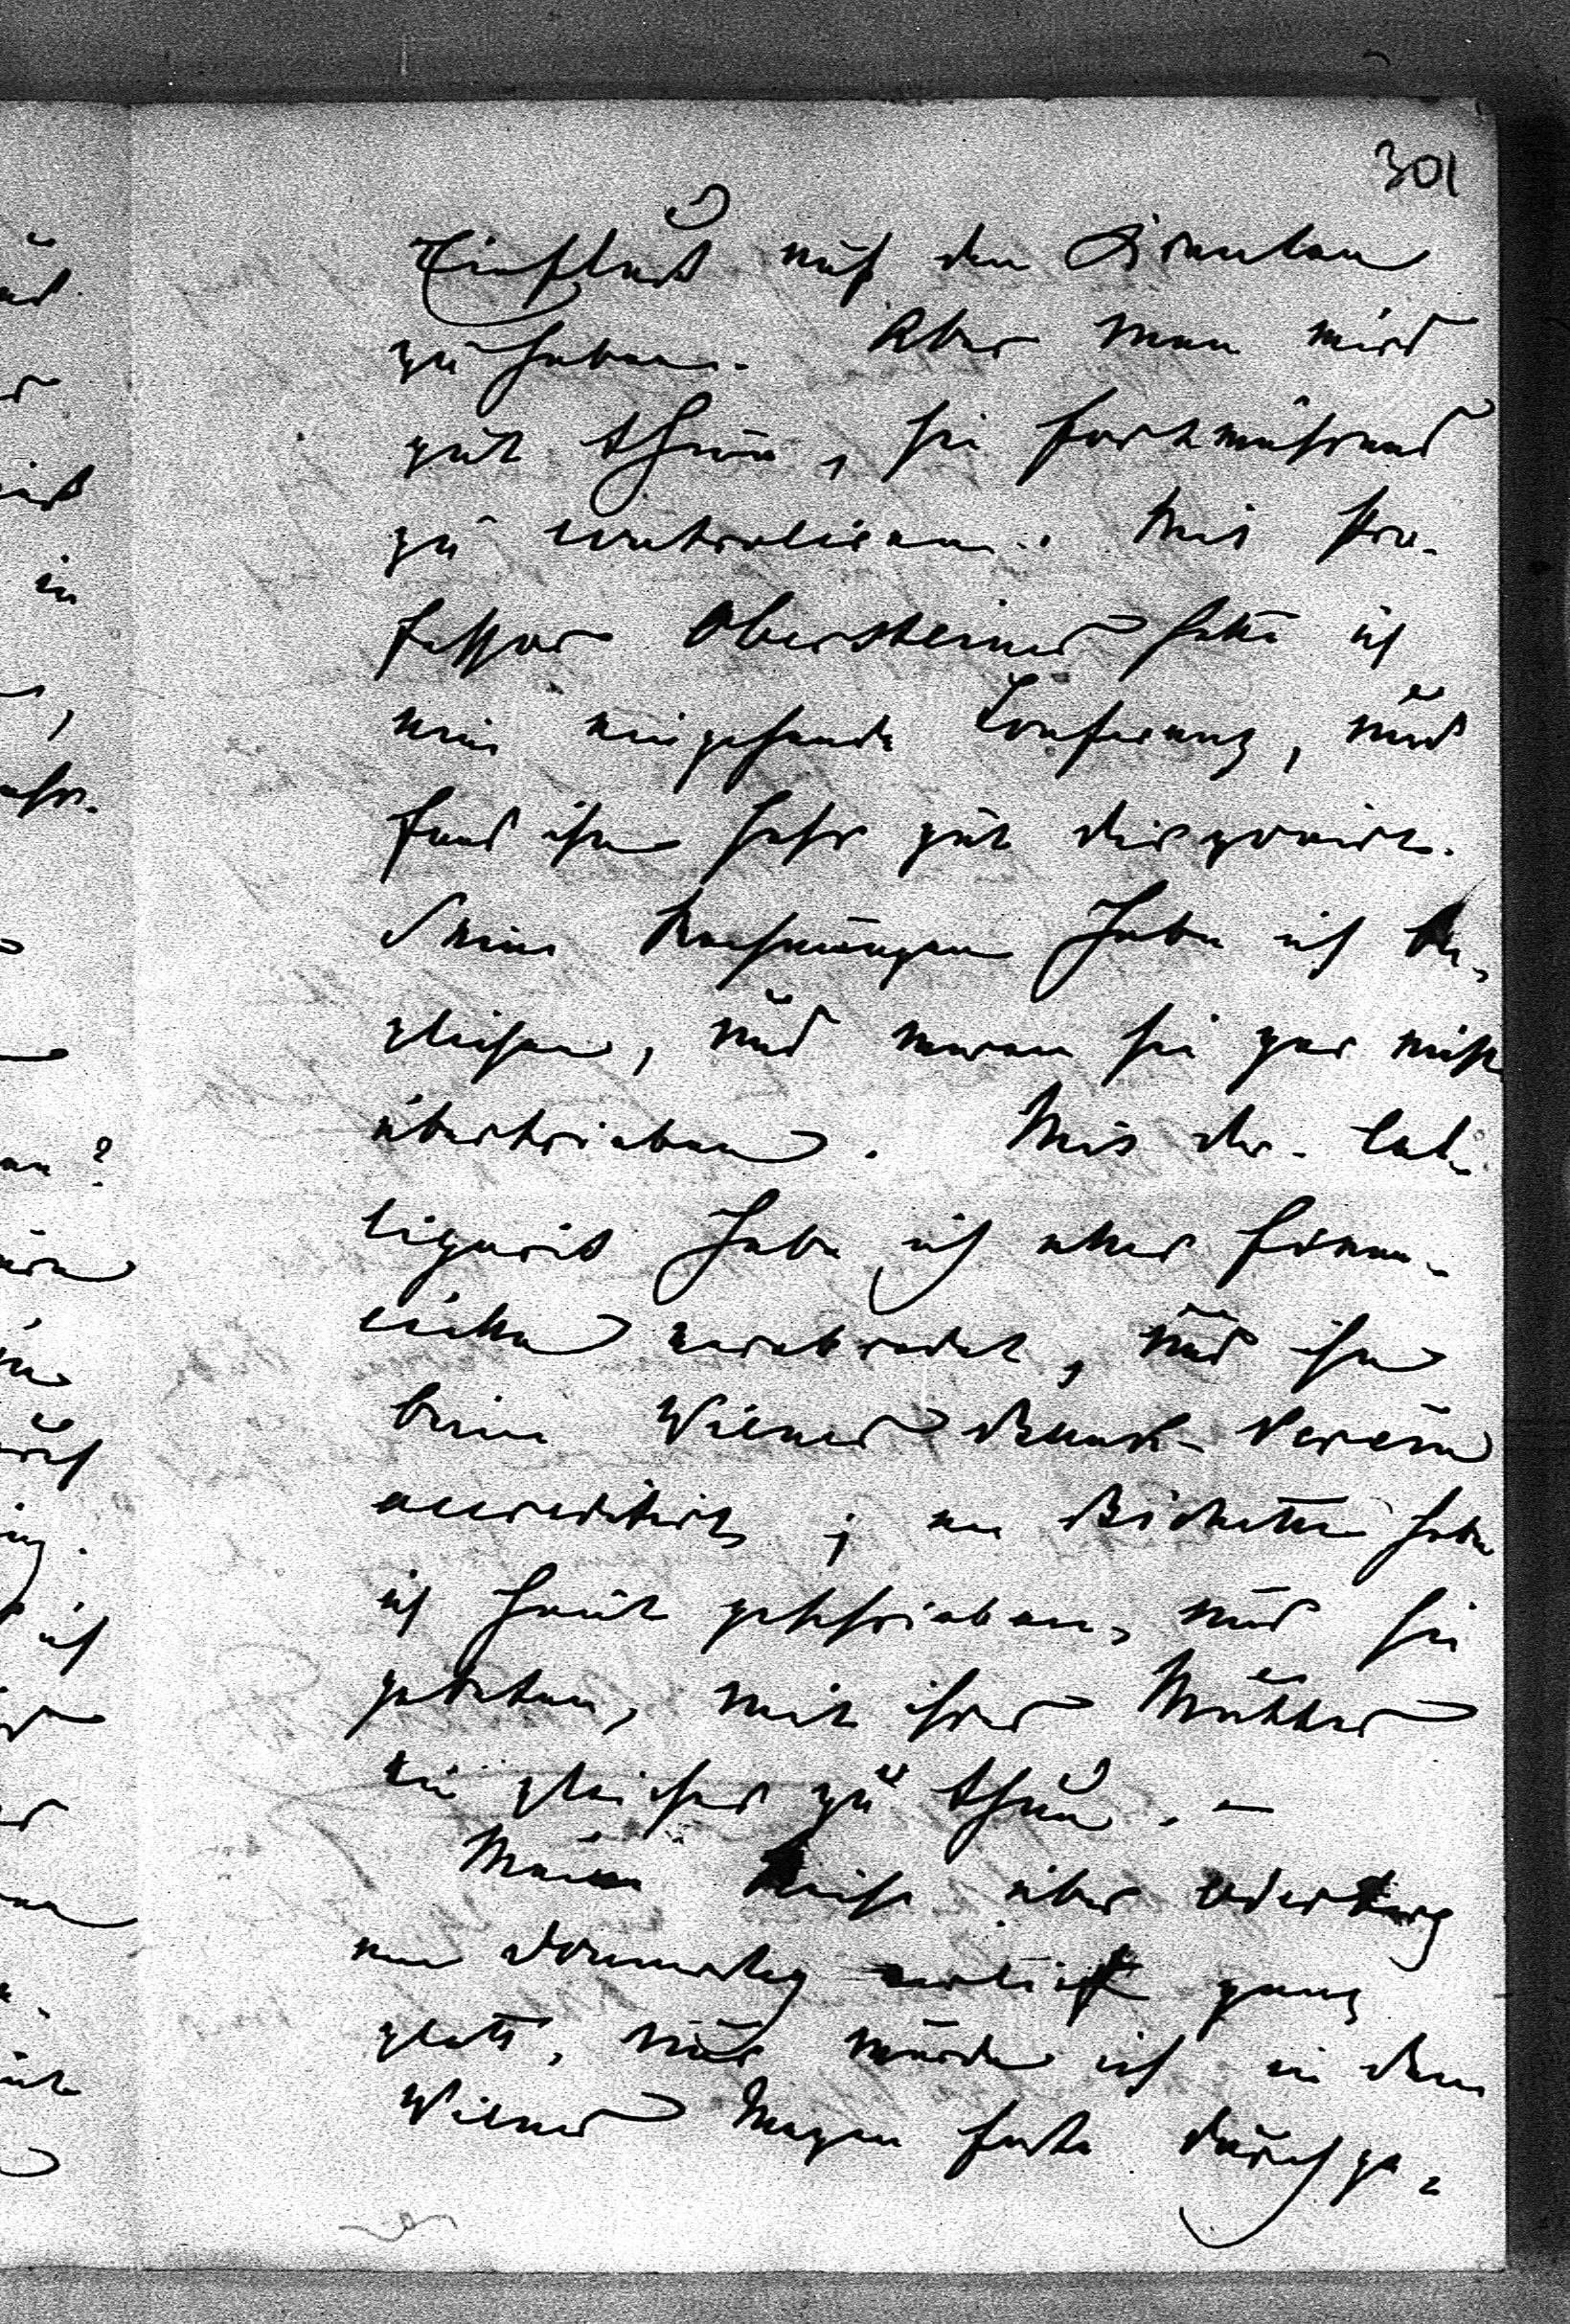 301
Einfluß auf den Kranken
zu haben. Aber man wird
gut thun, sie fortwährend
zu controlieren. Mit Pro-
fessor Obersteiner hatte ich
eine eingehende Conferenz, und
fand ihn sehr gut disponirt.
Seine Rechnungen habe ich be-
glichen, und waren sie gar nicht
übertrieben. Mit Dr.
habe ich alles Finan-
cielle verabredet, und ihn
beim Wiener Bank-Verein
accreditirt; an habe
ich heut geschrieben, und sie
gebeten, mit ihrer Mutter
ein gleiches zu thun. –
Meine Reise über Oderberg
am Donnerstag verlief ganz
glatt, nur wurde ich in dem
Wiener Wagen fest durchge-